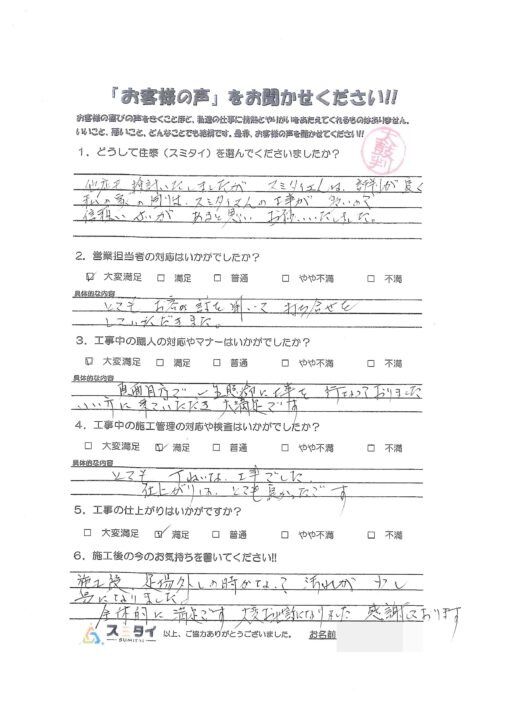 「お客様の声」をお聞かせください!!
お客様の喜びの声をきくことほど、私達の仕事に情熱とやりがいをあたえてくれるものはありません。
いいこと、悪いこと、どんなことでも結構です。是非、お客様の声を聞かせてください!!
太鼓判
1．どうして住泰（スミタイ）を選んでくださいましたか？
他店も 検討いたしましたが スミタイさんは、評判が良く
私の家の周りは、スミタイさんの工事が 多いので
信頼い よいが あると思い お願いいたしました。
2．営業担当者の対応はいかがでしたか？
大変満足 満足 普通 やや不満 不満
具体的な内容
とても お客の話を聞いて 打ち合せを
していただきました。
3．工事中の職人の対応やマナーはいかがでしたか？
大変満足 満足 普通 やや不満 不満
具体的な内容
真面目な方で 一生懸命に工事を 行なっておりました
いい方に来ていただき 大満足です
4．工事中の施工管理の対応や検査はいかがでしたか？
大変満足 満足 普通 やや不満 不満
具体的な内容
とても ていねいな 工事でした
仕上がりは、とても良かったです
5．工事の仕上がりはいかがですか？
大変満足 満足 普通 やや不満 不満
6．施工後の今のお気持ちを書いてください!!
施工後、足場外しの時かな、って 汚れが 少し
気になりました
全体的に 満足です 大変お世話になりました 感謝しております
スミタイ SUMITAI 以上、ご協力ありがとうございました。 お名前